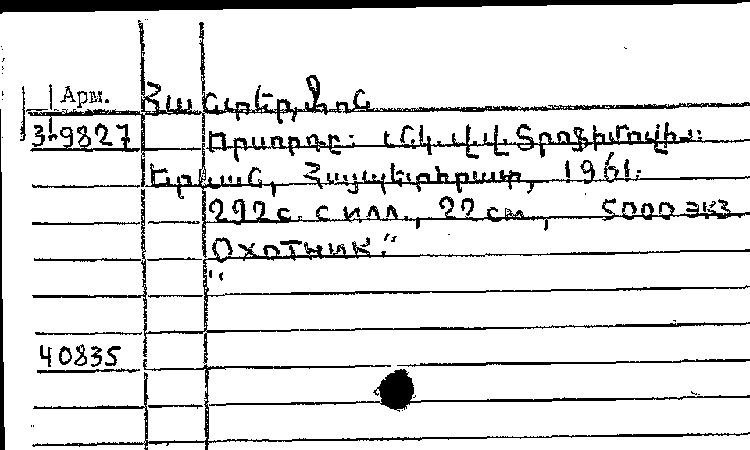 Арм. Հանտեր, Ջոն
3-9827 Որսորդը: Նկ. Վ. Վ. Տրոֆիմովի:
Երևան, Հայպետհրատ, 1961.
292 с. с илл., 22 см, 5000 экз
"Охотник."
40835